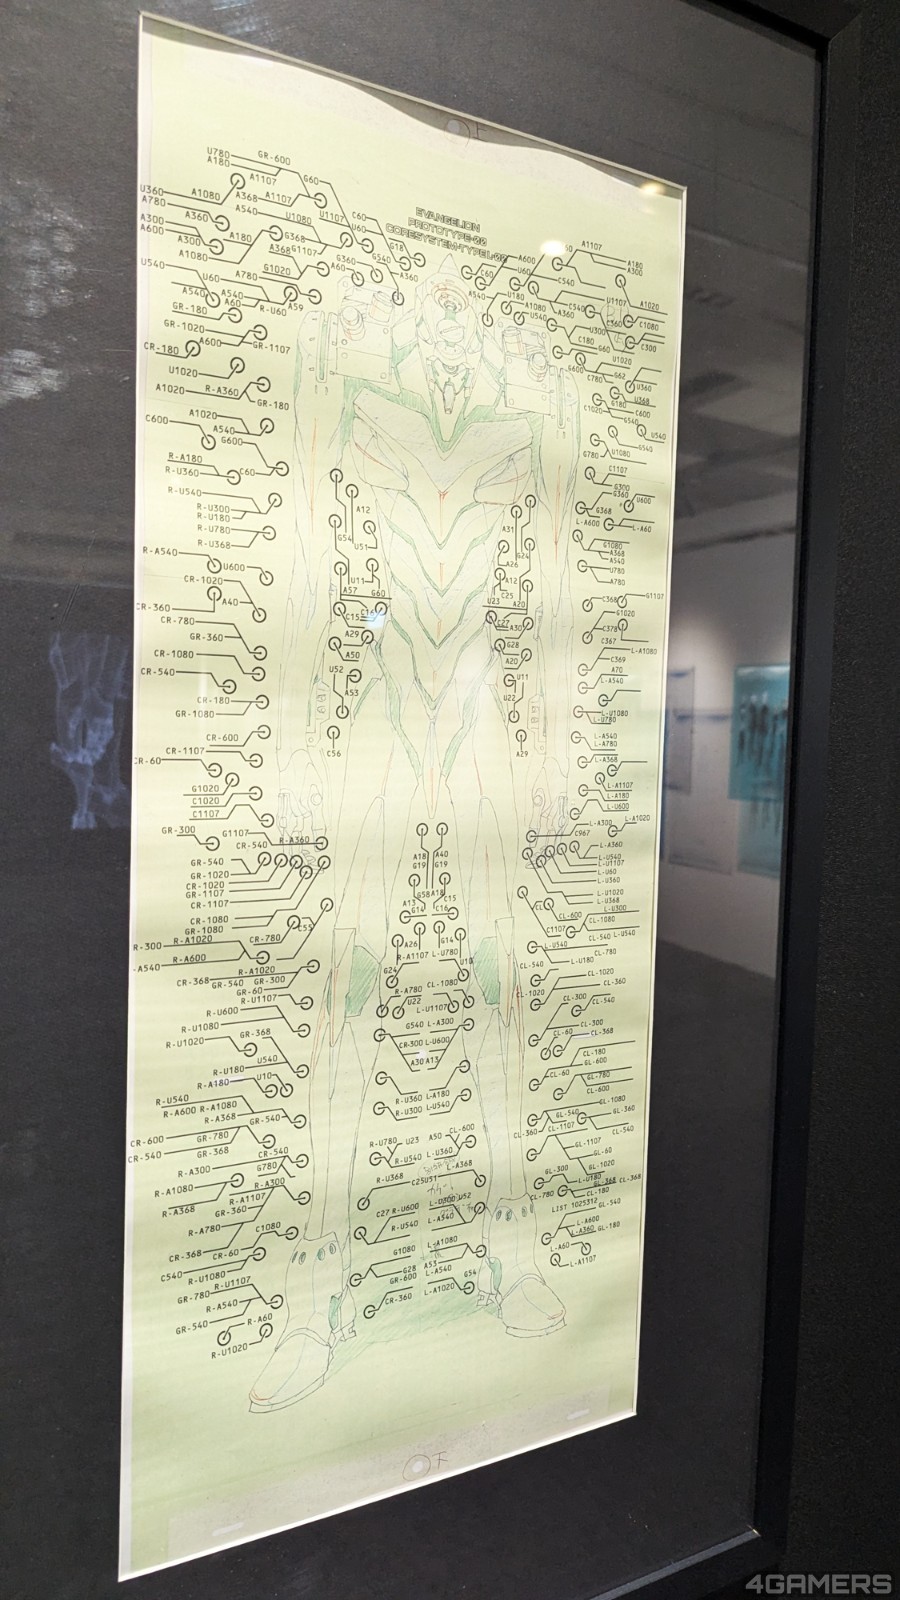 EVANGELION
PROTOTYPE-00
U780
A180
GR-600
A1107
G60
U360
A780
A1080
A368
A1107
A540
U1080
U1107
C60
U60
G18
A300
A600
A360
A300
A180
A1080
G368
A368
G1107
G360
G540
A360
U540
G1020
A60
U60
A780
A540
A540
A60
R-U60
A59
GR-180
GR-1020
GR-1107
A600
CR-180
U1020
A1020
R-A360
GR-180
A1020
C600
A540
G600
R-A180
R-U360
C60
R-U540
R-U300
R-U180
R-U780
R-U368
R-A540
U600
CR-1020
A40
CR-360
CR-780
GR-360
CR-1080
CR-540
CR-180
GR-1080
CR-600
CR-1107
G1020
C1020
C1107
GR-300
G1107
CR-540
R-A360
GR-540
GR-1020
CR-1020
GR-1107
CR-1107
CR-1080
GR-1080
R-A1020
CR-780
R-A600
R-A1020
CR-368
GR-540
GR-300
GR-60
R-U1107
R-U600
R-U1080
GR-368
R-U1020
U540
R-U180
R-A180
U10
R-U540
R-A600
R-A1080
R-A368
GR-540
CR-600
GR-780
CR-540
GR-368
CR-540
R-A300
G780
R-A1080
R-A300
R-A1107
R-A368
GR-360
R-A780
C1080
CR-368
CR-60
C540
R-U1080
R-U1107
GR-780
R-A540
GR-540
R-A60
R-U1020
A12
G54
U51
U11
A57
G60
C15
A29
A50
U52
A53
C56
A31
G24
A26
A12
C25
U23
A20
C27
A30
G28
A20
U11
U22
A29
A18
A40
G19
G19
G58
A18
A13
C15
G14
C16
A26
G14
R-A1107
L-U780
G24
U10
R-A780
CL-1080
U22
L-U1107
G540
L-A300
CR-300
L-U600
A30
A13
R-U360
L-A180
R-U300
L-U540
R-U780
U23
A50
CL-600
R-U540
L-U360
R-U368
L-A368
C25
U51
C27
R-U600
L-U300
U52
R-U540
L-A540
G1080
L-A1080
G28
A53
GR-600
L-A540
G54
CR-360
L-A1020
A600
A1107
A180
A300
C60
U60
C540
A540
U180
A1080
U540
A360
C540
U1107
A1020
C1080
U300
C300
C180
G60
U1020
G600
C780
G62
U360
G180
U368
C1020
C600
G540
U540
G540
U1080
G780
C1107
G300
G360
U600
G368
L-A600
L-A60
G1080
A368
A540
U780
A780
C368
G1107
C378
G1020
C367
L-A1080
C369
A70
L-A540
L-U1080
L-U780
L-A540
L-A780
L-A368
L-A1107
L-A180
L-U600
L-A300
L-A1020
C967
L-A360
L-U540
L-U1107
L-U60
L-U360
L-U1020
L-U368
L-U300
CL-600
CL-1080
C1107
CL-540
L-U540
L-U540
CL-780
L-U180
CL-540
CL-1020
CL-360
CL-1020
CL-300
CL-540
CL-300
CL-60
CL-368
CL-180
GL-600
CL-60
GL-780
CL-600
GL-1080
GL-540
GL-360
CL-1107
CL-360
CL-540
GL-1107
GL-60
GL-1020
GL-300
L-U180
GL-368
CL-368
CL-780
CL-180
LIST 1025312
GL-540
L-A600
L-A360
GL-180
L-A60
L-A1107
4GAMERS